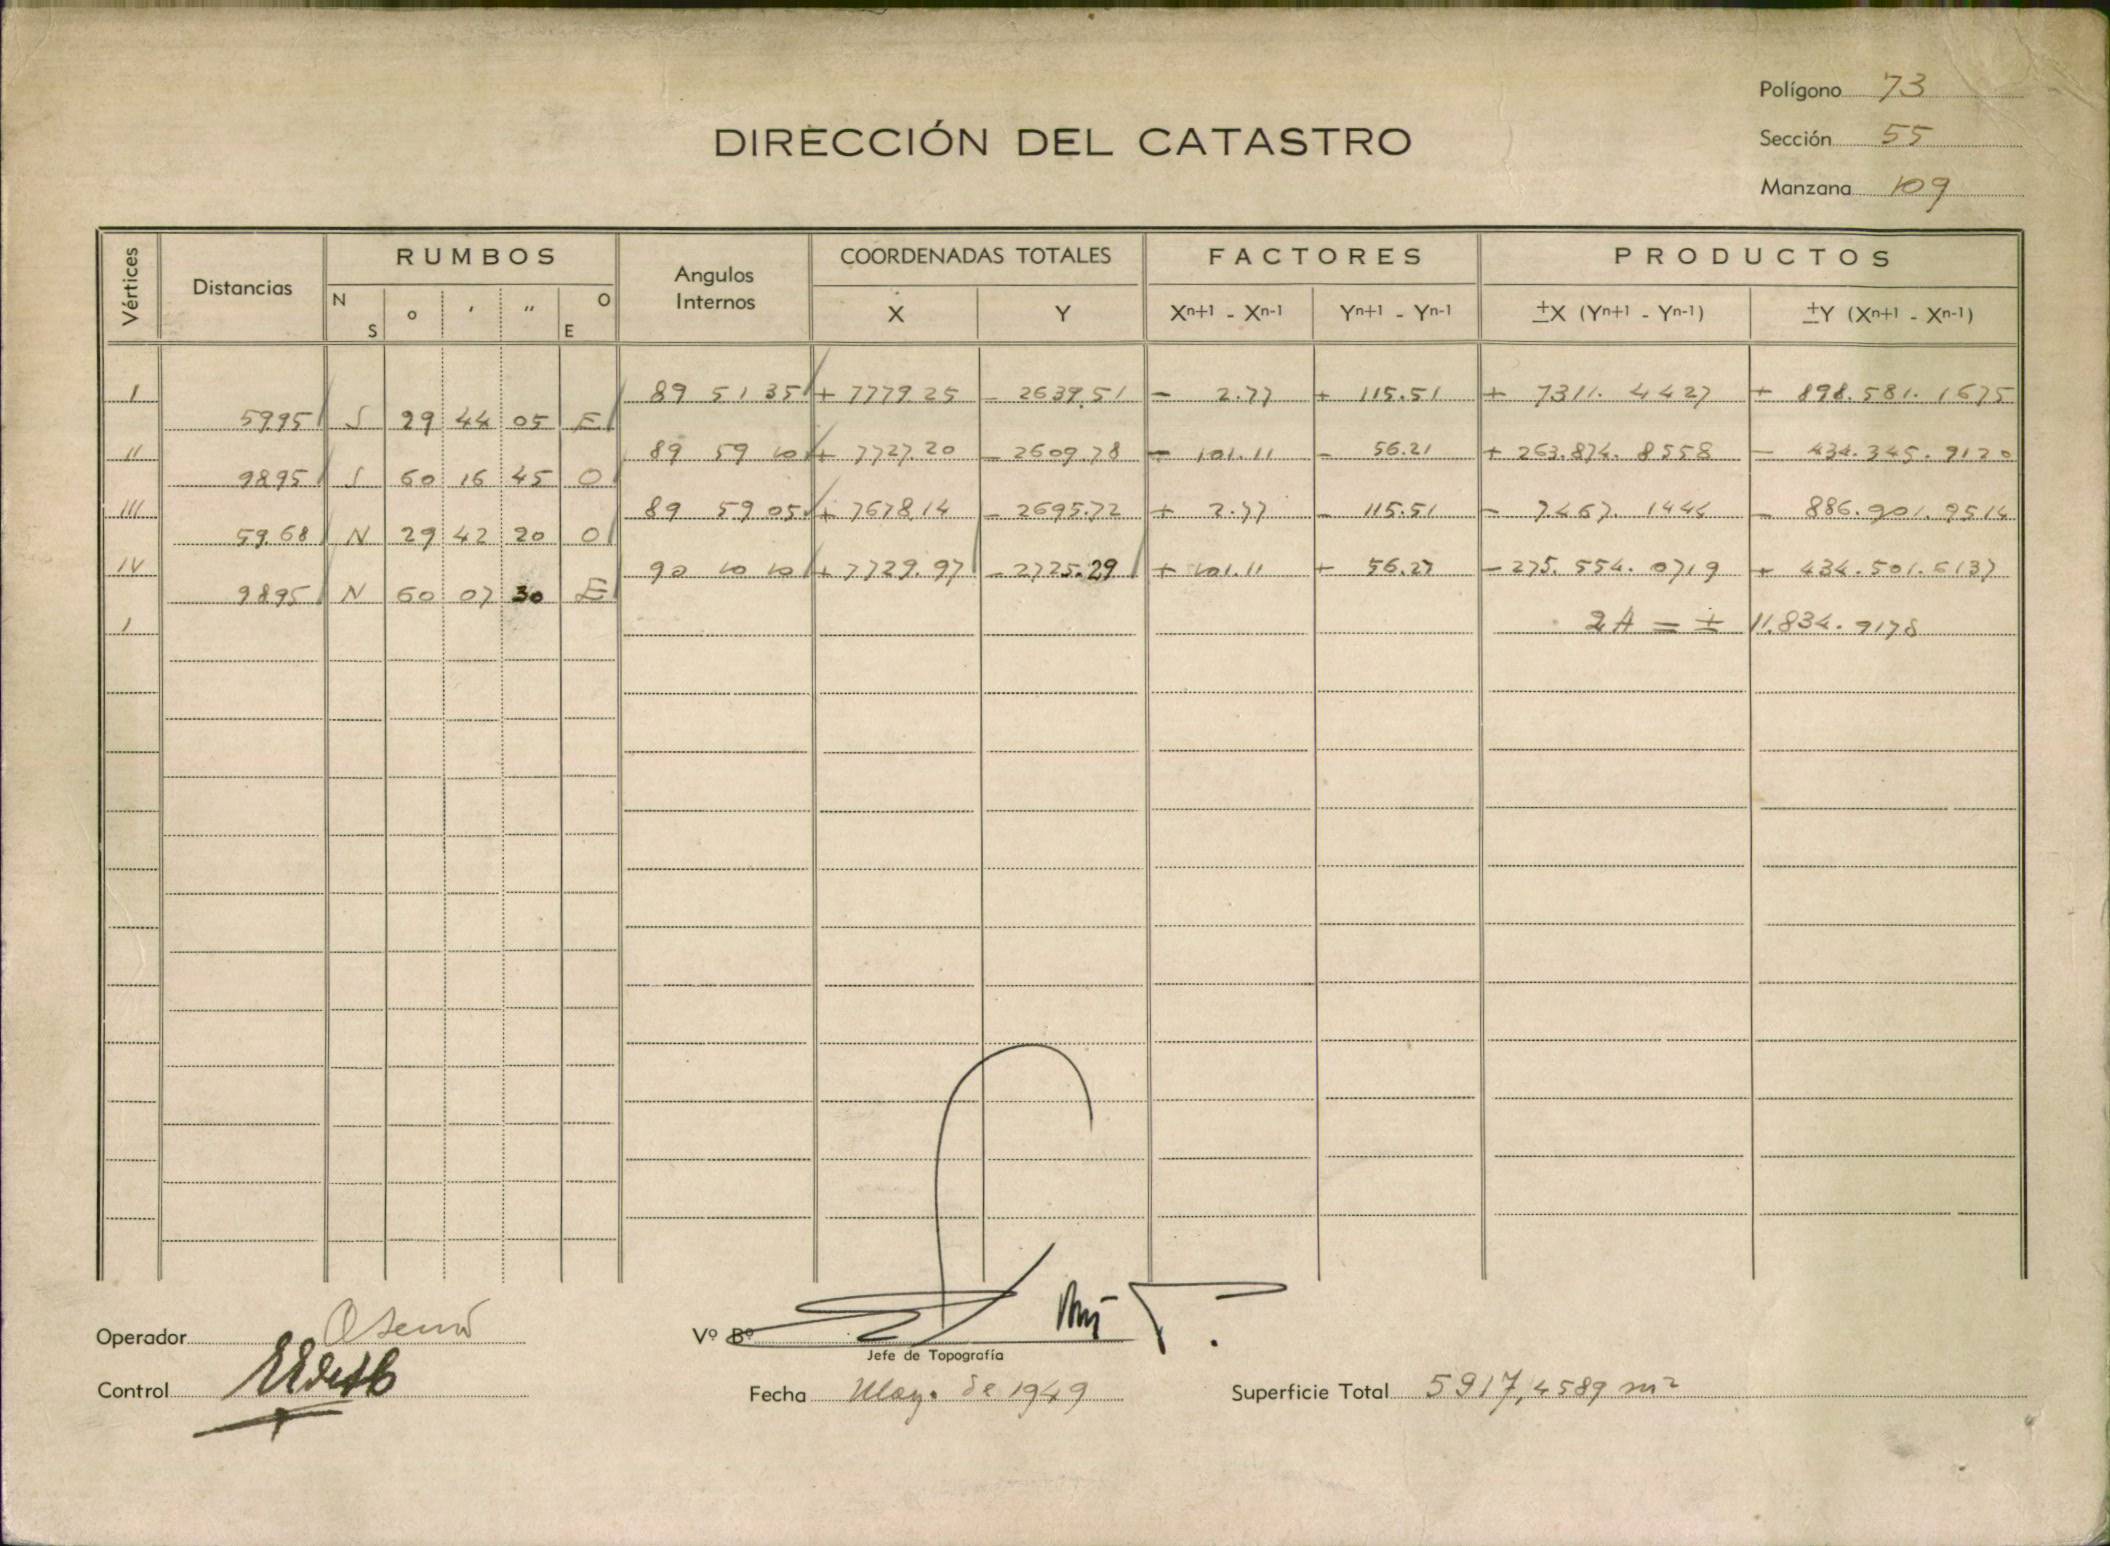 Polígono 73
DIRECCIÓN DEL CATASTRO
Sección 55
Manzana 109
Vértices Distancias RUMBOS Angulos Internos COORDENADAS TOTALES FACTORES PRODUCTOS
N S o ' '' O E X Y Xn+1 - Xn-1 Yn+1 - Yn-1 ±X (Yn+1 - Yn-1) ±Y (Xn+1 - Xn-1)
I 89 51 35 + 7779.25 - 2639.51 - 2.77 + 115.51 + 7311. 4427 + 898.581. 1675
59.95 S 29 44 05 E
II 89 59 10 + 7727.20 - 2609.78 - 101.11 - 56.21 + 263.874. 8558 - 434.345. 9120
98.95 S 60 16 45 O
III 89 59 05 + 7678.14 - 2695.72 + 2.77 - 115.51 - 7.467. 1444 - 886.901. 9514
59.68 N 29 42 20 O
IV 90 10 10 + 7729.97 - 2725.29 + 101.11 + 56.27 - 275. 554. 0719 + 434.501.6137
98.95 N 60 07 30 E
I 2A = ± 11.834. 9178
Operador
Vº Bº
Jefe de Topografía
Control
Fecha Mayo de 1949
Superficie Total 5917,4589 m²